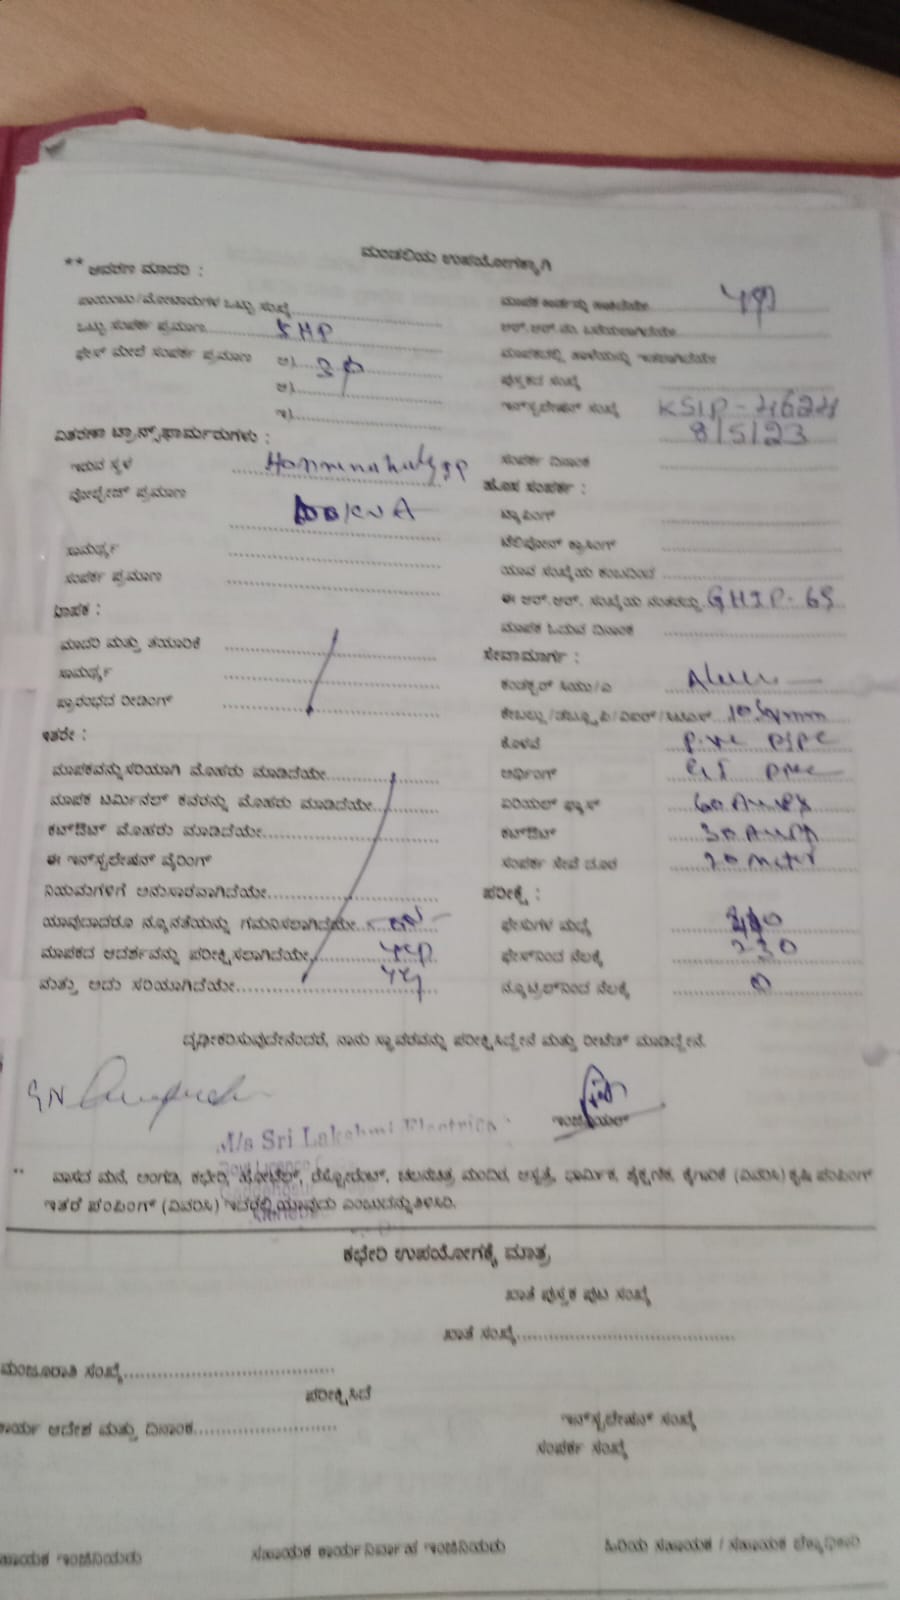 ಮಂಡಳಿಯ ಉಪಯೋಗಕ್ಕಾಗಿ
** ಆವರಣ ಮಾದರಿ :
ಪಾಯಿಂಟು/ಮೋಟಾರುಗಳ ಒಟ್ಟು ಸಂಖ್ಯೆ
ಒಟ್ಟು ಸಂಪರ್ಕ ಪ್ರಮಾಣ 5 HP
ಫೇಸ್ ಮೇಲೆ ಸಂಪರ್ಕ ಪ್ರಮಾಣ ಅ) 3φ
ಆ)
ಇ)
ವಿತರಣಾ ಟ್ರಾನ್ಸ್‌ಫಾರ್ಮರುಗಳು :
ಇರುವ ಸ್ಥಳ
ವೋಲ್ಟೇಜ್ ಪ್ರಮಾಣ 100 KVA
ಸಾಮರ್ಥ್ಯ
ಸಂಪರ್ಕ ಪ್ರಮಾಣ
ಮಾಪಕ :
ಮಾದರಿ ಮತ್ತು ತಯಾರಿಕೆ
ಸಾಮರ್ಥ್ಯ
ಪ್ರಾರಂಭದ ರೀಡಿಂಗ್
ಇತರೇ :
ಮಾಪಕವನ್ನು ಸರಿಯಾಗಿ ಮೊಹರು ಮಾಡಿದೆಯೇ
ಮಾಪಕ ಟರ್ಮಿನಲ್ ಕವರನ್ನು ಮೊಹರು ಮಾಡಿದೆಯೇ
ಕಟ್‌ಔಟ್ ಮೊಹರು ಮಾಡಿದೆಯೇ
ಈ ಇನ್‌ಸ್ಟಲೇಷನ್ ವೈರಿಂಗ್
ನಿಯಮಗಳಿಗೆ ಅನುಸಾರವಾಗಿದೆಯೇ
ಯಾವುದಾದರೂ ನ್ಯೂನತೆಯನ್ನು ಗಮನಿಸಲಾಗಿದೆಯೇ
ಮಾಪಕದ ಆದರ್ಶವನ್ನು ಪರೀಕ್ಷಿಸಲಾಗಿದೆಯೇ yes
ಮತ್ತು ಅದು ಸರಿಯಾಗಿದೆಯೇ yes
ಪುಸ್ತಕದ ಸಂಖ್ಯೆ
ಇನ್‌ಸ್ಟಲೇಷನ್ ಸಂಖ್ಯೆ KSIP - 4624
8/5/23
ಸಂಪರ್ಕ ದಿನಾಂಕ
ಹೊಸ ಸಂಪರ್ಕ :
ಟ್ಯಾಪಿಂಗ್
ಟೆಲಿಫೋನ್ ಕ್ರಾಸಿಂಗ್
ಯಾವ ಸಂಖ್ಯೆಯ ಕಂಬದಿಂದ
ಈ ಆರ್.ಆರ್. ಸಂಖ್ಯೆಯ ನಂತರದ್ದು GHIP-65
ಮಾಪಕ ಓದುವ ದಿನಾಂಕ
ಸೇವಾಮಾರ್ಗ :
ಕಂಡಕ್ಟರ್ ಸಿಯು/ಎ
10 Sqmm
ಕೊಳವೆ p.v.c pipe
ಅರ್ಥಿಂಗ್ G.I pipe
ಏರಿಯಲ್ ಫ್ಯೂಸ್ 60 Amps
ಕಟ್‌ಔಟ್ 30 Amps
ಸಂಪರ್ಕ ಸೇವೆ ದೂರ 20 meter
ಪರೀಕ್ಷೆ :
ಫೇಸುಗಳ ಮಧ್ಯೆ
ಫೇಸ್‌ನಿಂದ ನೆಲಕ್ಕೆ 230
ನ್ಯೂಟ್ರಲ್‌ನಿಂದ ನೆಲಕ್ಕೆ 0
ದೃಢೀಕರಿಸುವುದೇನೆಂದರೆ, ನಾನು ಸ್ಥಾವರವನ್ನು ಪರೀಕ್ಷಿಸಿದ್ದೇನೆ ಮತ್ತು ರೀಟೆಡ್ ಮಾಡಿದ್ದೇನೆ.
M/s Sri Lakshmi Electrica
** ವಾಸದ ಮನೆ, ಅಂಗಡಿ, ಕಛೇರಿ, ಹೋಟೆಲ್, ರೆಸ್ಟೋರೆಂಟ್, ಚಲನಚಿತ್ರ ಮಂದಿರ, ಆಸ್ಪತ್ರೆ, ಧಾರ್ಮಿಕ, ಶೈಕ್ಷಣಿಕ, ಕೈಗಾರಿಕೆ (ವಿವರಿಸಿ) ಕೃಷಿ ಪಂಪಿಂಗ್
ಇತರೆ ಪಂಪಿಂಗ್ (ವಿವರಿಸಿ) ಇದರಲ್ಲಿ ಯಾವುದು ಎಂಬುದನ್ನು ತಿಳಿಸಿರಿ.
ಕಛೇರಿ ಉಪಯೋಗಕ್ಕೆ ಮಾತ್ರ
ಖಾತೆ ಪುಸ್ತಕ ಪುಟ ಸಂಖ್ಯೆ
ಖಾತೆ ಸಂಖ್ಯೆ
ಮಂಜೂರಾತಿ ಸಂಖ್ಯೆ
ಪರೀಕ್ಷಿಸಿದೆ
ಕಾರ್ಯ ಆದೇಶ ಮತ್ತು ದಿನಾಂಕ
ಇನ್‌ಸ್ಟಲೇಷನ್ ಸಂಖ್ಯೆ
ಸಂಪರ್ಕ ಸಂಖ್ಯೆ
ಸಹಾಯಕ ಇಂಜಿನಿಯರು ಸಹಾಯಕ ಕಾರ್ಯನಿರ್ವಾಹಕ ಇಂಜಿನಿಯರು ಹಿರಿಯ ಸಹಾಯಕ / ಸಹಾಯಕ ಲೆಕ್ಕಾಧಿಕಾರಿ